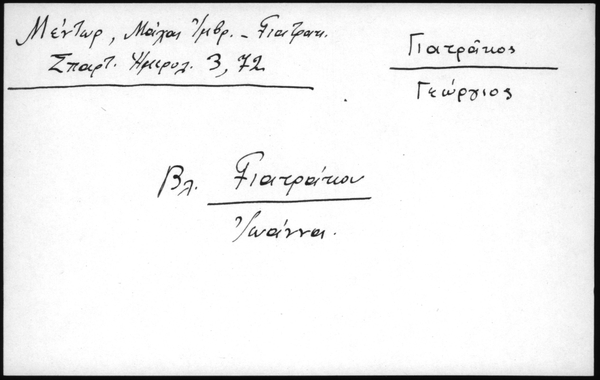 Μέντωρ, Μάχαι Ἰμβρ. - Γιατρακ.
Σπαρτ. Ημερολ. 3, 72
Γιατρᾶκος
Γεώργιος
Βλ. Γιατράκου
Ἰωάννα.